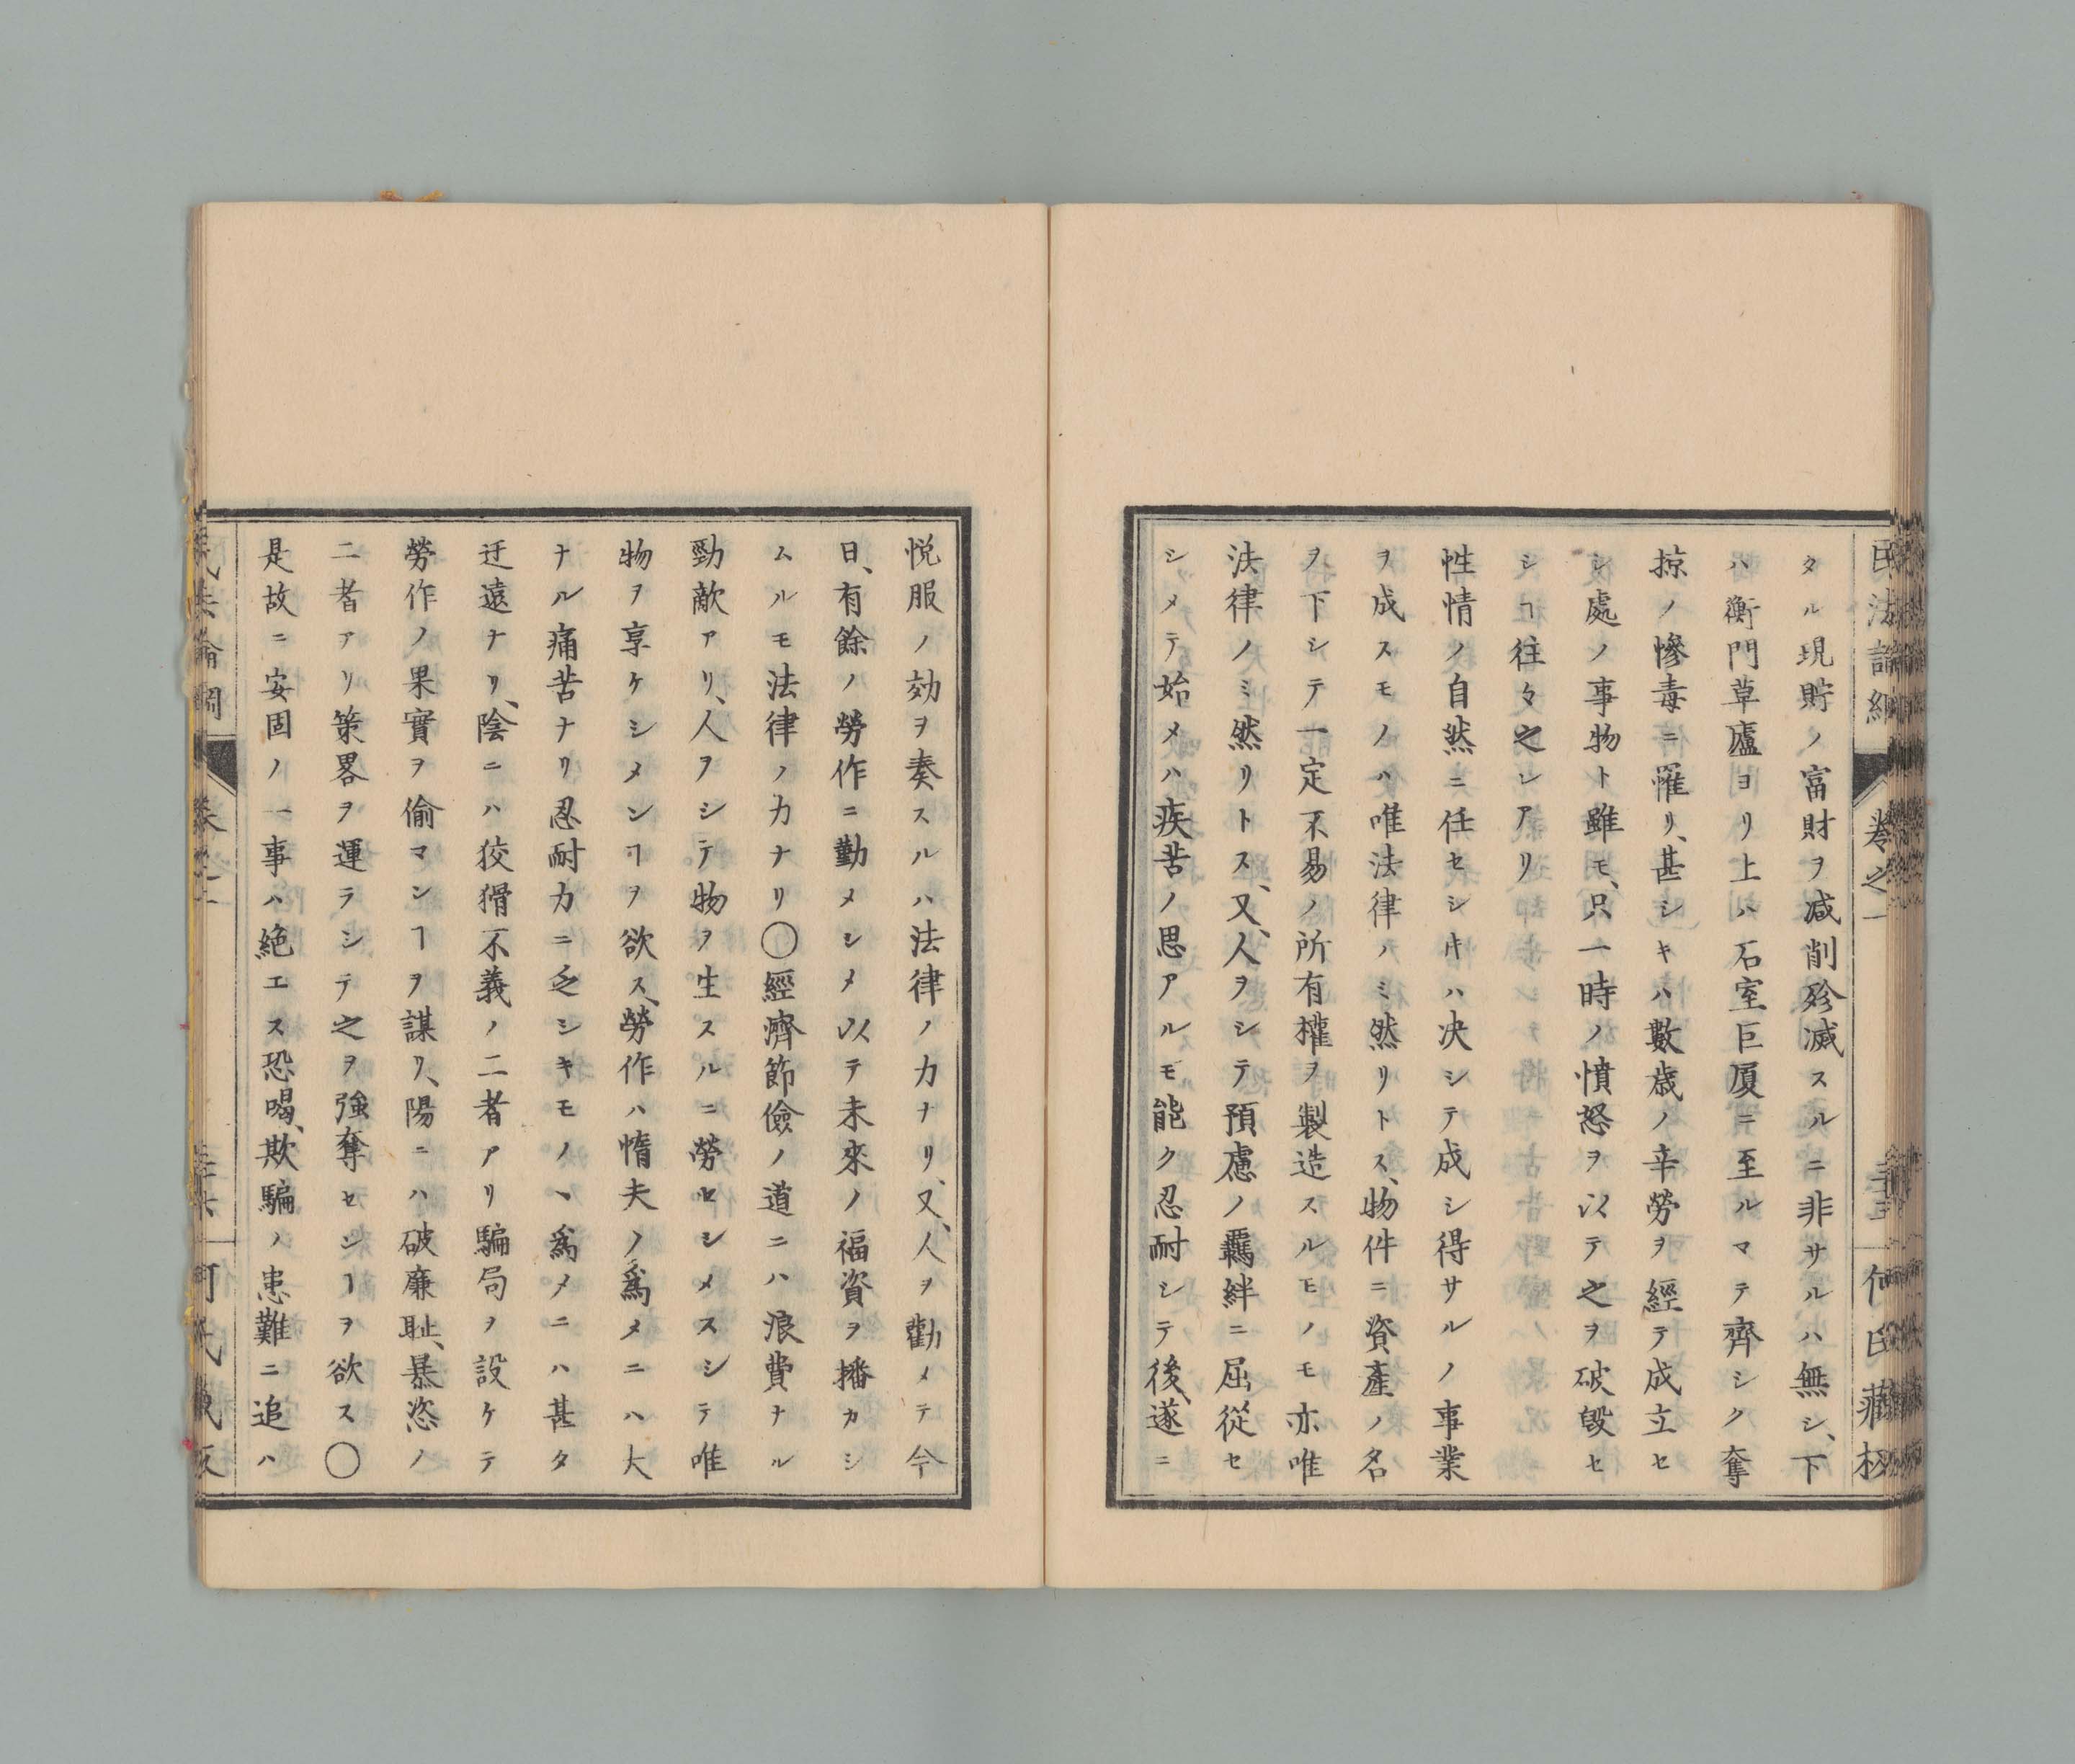 民法論綱 卷之一 何氏藏板
タル現貯ノ富財ヲ減削殄滅スルニ非サルハ無シ、下
ハ衡門草廬ヨリ上ハ石室巨厦ニ至ルマテ齊シク奪
掠ノ慘毒ニ罹リ、甚シキハ數歳ノ辛勞ヲ經テ成立セ
シ處ノ事物ト雖モ、只一時ノ憤怒ヲ以テ之ヲ破毀セ
シヿ往々之レアリ
性情ノ自然ニ任セシキハ决シテ成シ得サルノ事業
ヲ成スモノハ唯法律ノミ然リトス、物件ニ資產ノ名
ヲ下シテ一定不易ノ所有權ヲ製造スルモノモ亦唯
法律ノミ然リトス、又、人ヲシテ預慮ノ羈絆ニ屈從セ
シメテ始メハ疾苦ノ思アルモ能ク忍耐シテ後、遂ニ
悦服ノ効ヲ奏スルハ法律ノカナリ、又、人ヲ勸メテ今
日、有餘ノ勞作ニ勤メシメ以テ未來ノ福資ヲ播カシ
ムルモ法律ノ力ナリ〇經濟節儉ノ道ニハ浪費ナル
勁敵アリ、人ヲシテ物ヲ生スルニ勞セシメスシテ唯
物ヲ享ケシメンヿヲ欲ス、勞作ハ惰夫ノ爲メニハ大
ナル痛苦ナリ忍耐力ニ乏シキモノヽ爲メニハ甚タ
迂遠ナリ、陰ニハ狡猾不義ノ二者アリ騙局ヲ設ケテ
勞作ノ果實ヲ偷マンヿヲ謀リ、陽ニハ破廉耻、暴恣ノ
二者アリ策畧ヲ運ラシテ之ヲ強奪センヿヲ欲ス〇
是故ニ安固ノ一事ハ絶エス恐喝、欺騙ノ患難ニ追ハ